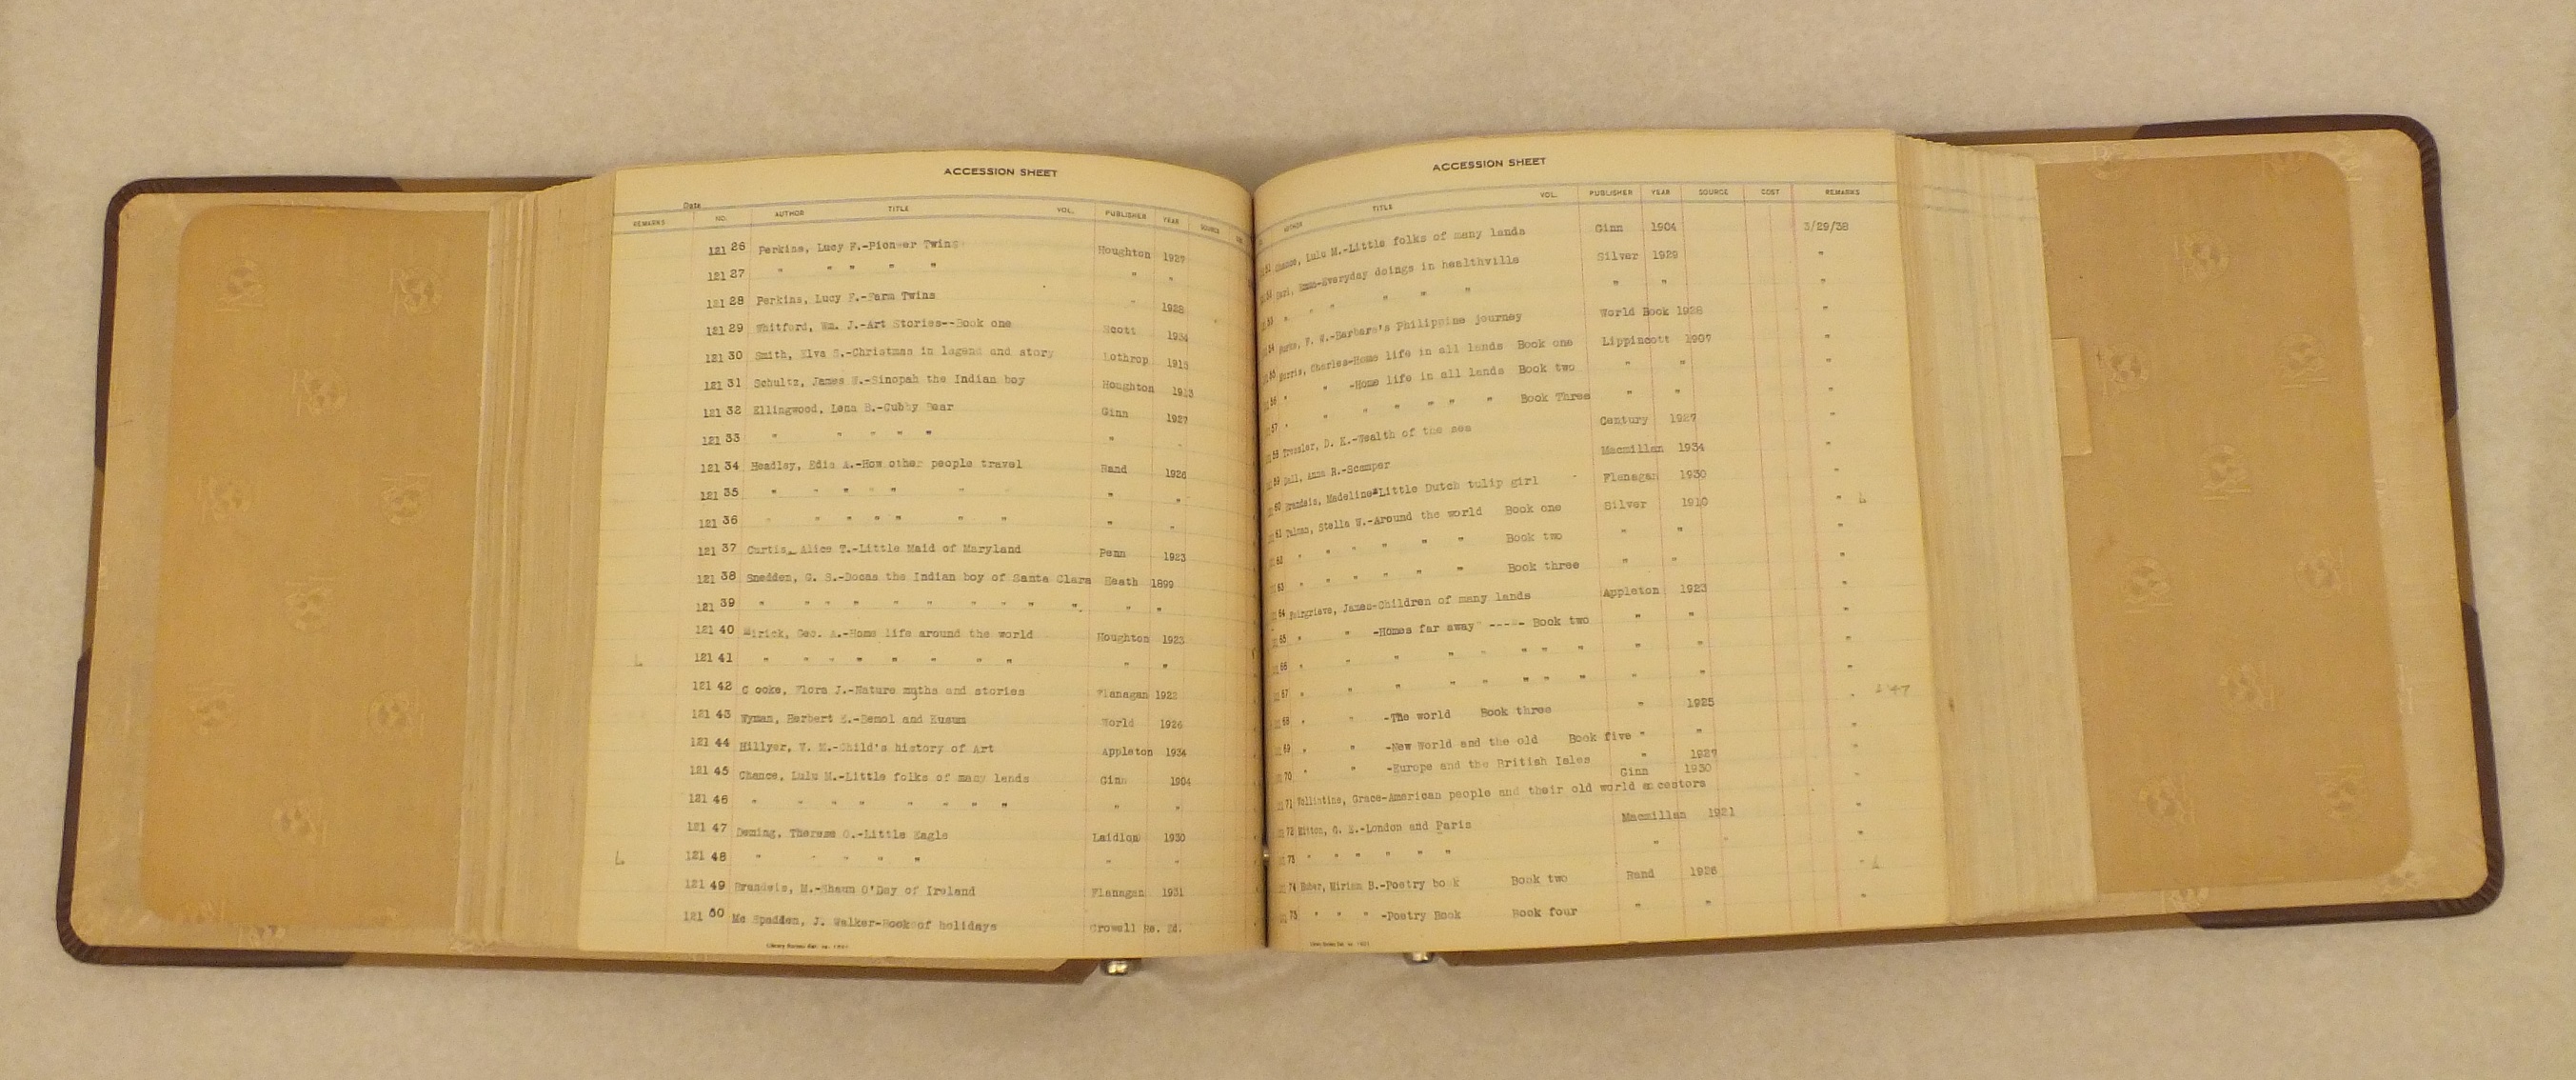 ACCESSION SHEET
Date
REMARKS NO. AUTHOR TITLE VOL. PUBLISHER YEAR SOURCE
121 26 Perkins, Lucy F.-Pioneer Twins Houghton 1927
121 27 " " " " " " "
121 28 Perkins, Lucy F.-Farm Twins " 1928
121 29 Whitford, Wm. J.-Art Stories--Book one Scott 1934
121 30 Smith, Elva S.-Christmas in legend and story Lothrop 1915
121 31 Schultz, James W.-Sinopah the Indian boy Houghton 1913
121 32 Ellingwood, Lena B.-Cubby Bear Ginn 1927
121 33 " " " " " " "
121 34 Headley, Edie A.-How other people travel Rand 1926
121 35 " " " " " " " " "
121 36 " " " " " " " " "
121 37 Curtis, Alice T.-Little Maid of Maryland Penn 1923
121 38 Snedden, G. S.-Docas the Indian boy of Santa Clara Heath 1899
121 39 " " " " " " " " " " " "
121 40 Mirick, Geo. A.-Home life around the world Houghton 1923
L 121 41 " " " " " " " " " "
121 42 C ooke, Flora J.-Nature myths and stories Flanagan 1922
121 43 Wyman, Herbert E.-Bemol and Kusum World 1926
121 44 Hillyer, V. M.-Child's history of Art Appleton 1934
121 45 Chance, Lulu M.-Little folks of many lands Ginn 1904
121 46 " " " " " " " " " "
121 47 Deming, Therese O.-Little Eagle Laidlow 1930
L 121 48 " " " " " " "
121 49 Brandeis, M.-Shaun O'Day of Ireland Flanagan 1931
121 50 Mc Spadden, J. Walker-Book of holidays Crowell Re. Ed.
ACCESSION SHEET
AUTHOR TITLE VOL. PUBLISHER YEAR SOURCE COST REMARKS
51 Chance, Lulu M.-Little folks of many lands Ginn 1904 3/29/38
Everyday doings in healthville Silver 1929 "
53 " " " " " " " " "
54 F. W.-Barbara's Philippine journey World Book 1928 "
55 Morris, Charles-Home life in all lands Book one Lippincott 1907 "
56 " " -Home life in all lands Book two " " "
57 " " " " " " " Book Three " " "
58 Tressler, D. K.-Wealth of the sea Century 1927 "
59 Sell, Anna R.-Scamper Macmillan 1934 "
60 Brandeis, Madeline-Little Dutch tulip girl Flanagan 1930 "
61 Stella W.-Around the world Book one Silver 1910 " L
62 " " " " " Book two " " "
63 " " " " " Book three " " "
64 Fairgrieve, James-Children of many lands Appleton 1923 "
65 " " -Homes far away" ----- Book two " " "
66 " " " " " " " " " " "
67 " " " " " " " " " " " 47
68 " " -The world Book three " 1925 "
69 " " -New World and the old Book five " " "
70 " " -Europe and the British Isles " 1927 "
71 Vollintine, Grace-American people and their old world ancestors Ginn 1930 "
72 Mitton, G. E.-London and Paris Macmillan 1921 "
73 " " " " " " " " "
74 Huber, Miriam B.-Poetry book Book two Rand 1926 " L
75 " " " -Poetry Book Book four " " "